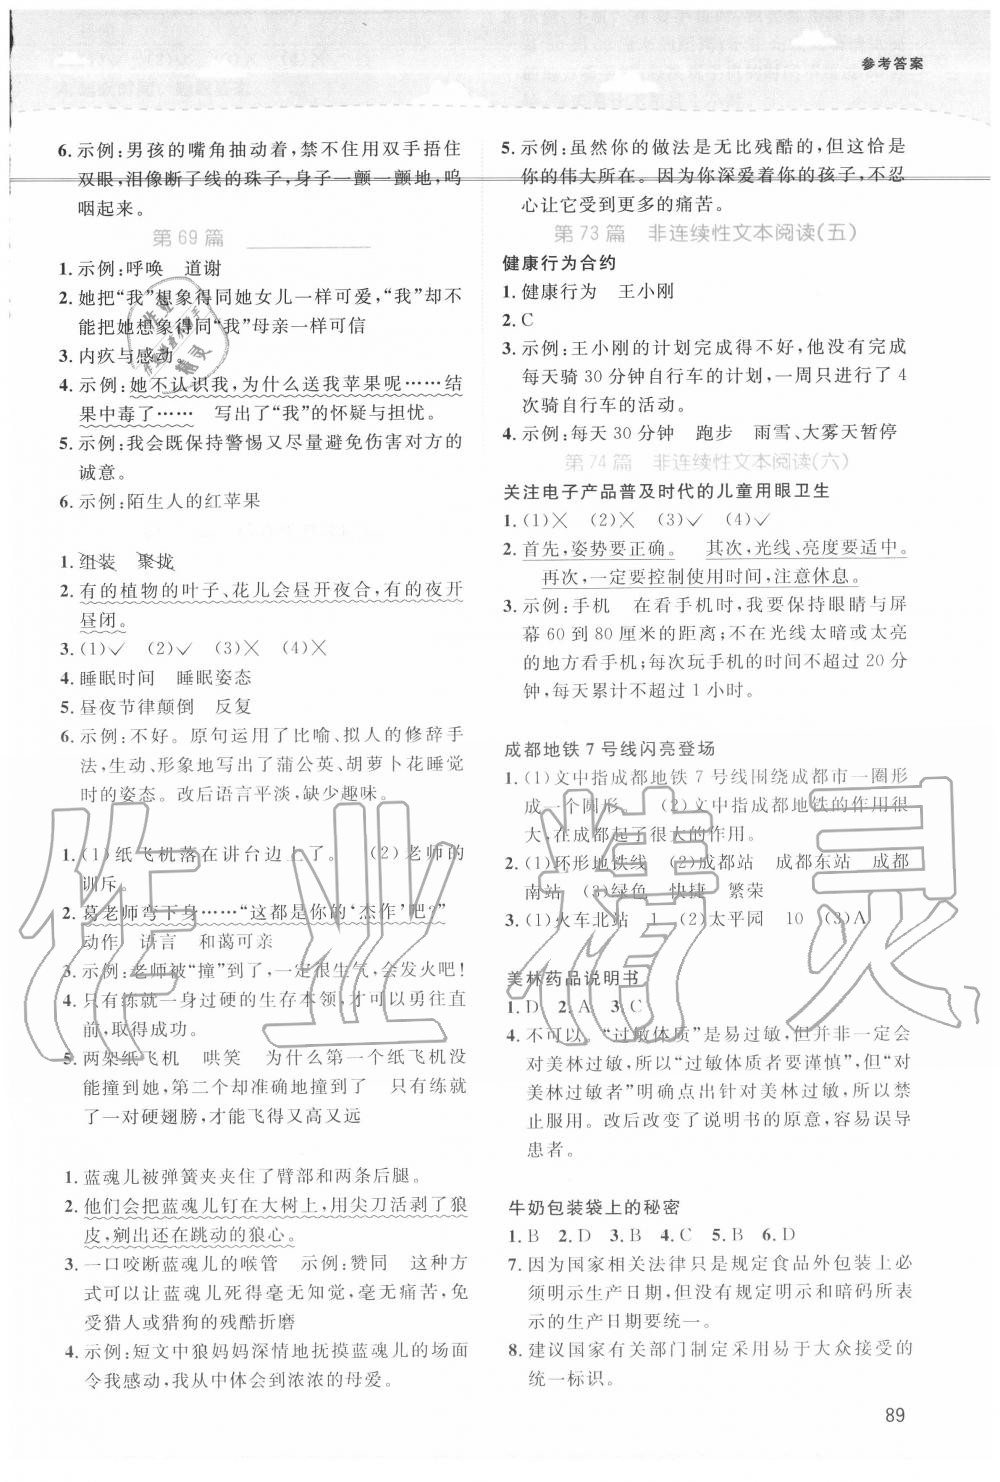 参考答案
6. 示例:男孩的嘴角抽动着,禁不住用双手捂住
双眼,泪像断了线的珠子,身子一颤一颤地,呜
咽起来。
第 69 篇
1. 示例:呼唤　道谢
2. 她把“我”想象得同她女儿一样可爱,“我”却不
能把她想象得同“我”母亲一样可信
3. 内疚与感动。
4. 示例:她不认识我,为什么送我苹果呢……结
果中毒了……　写出了“我”的怀疑与担忧。
5. 示例:我会既保持警惕又尽量避免伤害对方的
诚意。
6. 示例:陌生人的红苹果
1. 组装　聚拢
2. 有的植物的叶子、花儿会昼开夜合,有的夜开
昼闭。
3. (1)√　(2)√　(3)×　(4)×
4. 睡眠时间　睡眠姿态
5. 昼夜节律颠倒　反复
6. 示例:不好。原句运用了比喻、拟人的修辞手
法,生动、形象地写出了蒲公英、胡萝卜花睡觉
时的姿态。改后语言平淡,缺少趣味。
1. (1)纸飞机落在讲台边上了。　(2)老师的
训斥。
2. 葛老师弯下身……“这都是你的‘杰作’吧?”
动作　语言　和蔼可亲
3. 示例:老师被“撞”到了,一定很生气,会发火吧!
4. 只有练就一身过硬的生存本领,才可以勇往直
前,取得成功。
5. 两架纸飞机　哄笑　为什么第一个纸飞机没
能撞到她,第二个却准确地撞到了　只有练就
了一对硬翅膀,才能飞得又高又远
1. 蓝魂儿被弹簧夹夹住了臂部和两条后腿。
2. 他们会把蓝魂儿钉在大树上,用尖刀活剥了狼
皮,剜出还在跳动的狼心。
3. 一口咬断蓝魂儿的喉管　示例:赞同　这种方
式可以让蓝魂儿死得毫无知觉,毫无痛苦,免
受猎人或猎狗的残酷折磨
4. 示例:短文中狼妈妈深情地抚摸蓝魂儿的场面
令我感动,我从中体会到浓浓的母爱。
5. 示例:虽然你的做法是无比残酷的,但这恰是
你的伟大所在。因为你深爱着你的孩子,不忍
心让它受到更多的痛苦。
第 73 篇　非连续性文本阅读(五)
健康行为合约
1. 健康行为　王小刚
2. C
3. 示例:王小刚的计划完成得不好,他没有完成
每天骑 30 分钟自行车的计划,一周只进行了 4
次骑自行车的活动。
4. 示例:每天 30 分钟　跑步　雨雪、大雾天暂停
第 74 篇　非连续性文本阅读(六)
关注电子产品普及时代的儿童用眼卫生
1. (1)×　(2)×　(3)√　(4)√
2. 首先,姿势要正确。　其次,光线、亮度要适中。
再次,一定要控制使用时间,注意休息。
3. 示例:手机　在看手机时,我要保持眼睛与屏
幕 60 到 80 厘米的距离;不在光线太暗或太亮
的地方看手机;每次玩手机的时间不超过 20 分
钟,每天累计不超过 1 小时。
成都地铁 7 号线闪亮登场
1. (1)文中指成都地铁 7 号线围绕成都市一圈形
成一个圆形。　(2)文中指成都地铁的作用很
大,在成都起了很大的作用。
2. (1)环形地铁线　(2)成都站　成都东站　成都
南站　(3)绿色　快捷　繁荣
3. (1)火车北站　1　(2)太平园　10　(3)A
美林药品说明书
1. D　2. A　3. C
4. 不可以。“过敏体质”是易过敏,但并非一定会
对美林过敏,所以“过敏体质者要谨慎”,但“对
美林过敏者”明确点出针对美林过敏,所以禁
止服用。改后改变了说明书的原意,容易误导
患者。
牛奶包装袋上的秘密
1. B　2. D　3. B　4. C　5. B　6. D
7. 因为国家相关法律只是规定食品外包装上必
须明示生产日期,但没有规定明示和暗码所表
示的生产日期要统一。
8. 建议国家有关部门制定采用易于大众接受的
统一标识。
89
作业精灵